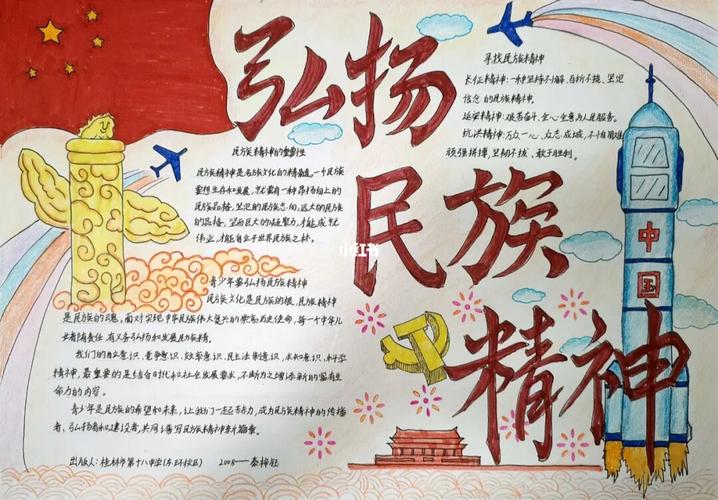 弘扬
民族
精神
寻找民族精神
长征精神:一种坚持不懈、自析不挠、坚定
信念的民族精神。
延安精神:艰苦奋斗、全心全意为人民服务。
抗洪精神:万众一心、众志成城、不怕艰难
顽强拼搏、坚韧不拔、敢于胜利。
民族精神的重要性
民族精神是名族文化的精髓,一个民族
要想生存和发展,就要有一种昂扬向上的
民族品格,坚定的民族志向,远大的民族
的品格,坚而巨大的凝聚力,才能成就
伟业,才能自立于世界民族之林。
青少年要弘扬民族精神
民族文化是民族的根,民族精神
是民族的魂,面对实现中华民族伟大复兴的崇高历史使命,每一个中华儿
女肩负责任,有义务弘扬和发展民族精
我们的自立意识、竞争意识、效率意识、民主法律意识、求知意识、科学
精神,最重要的是结合时代和社会发展要求,不断为之增添新的富有生
命力的内容。
青少年是民族的希望和未来,让我们一起努力,成为民族精神的传播
者、弘扬者和建设者,共同谱写民族精神新篇章。
出版人:桂林市第十八中学(东环校区) 2008——秦梓钰
中国
小红书